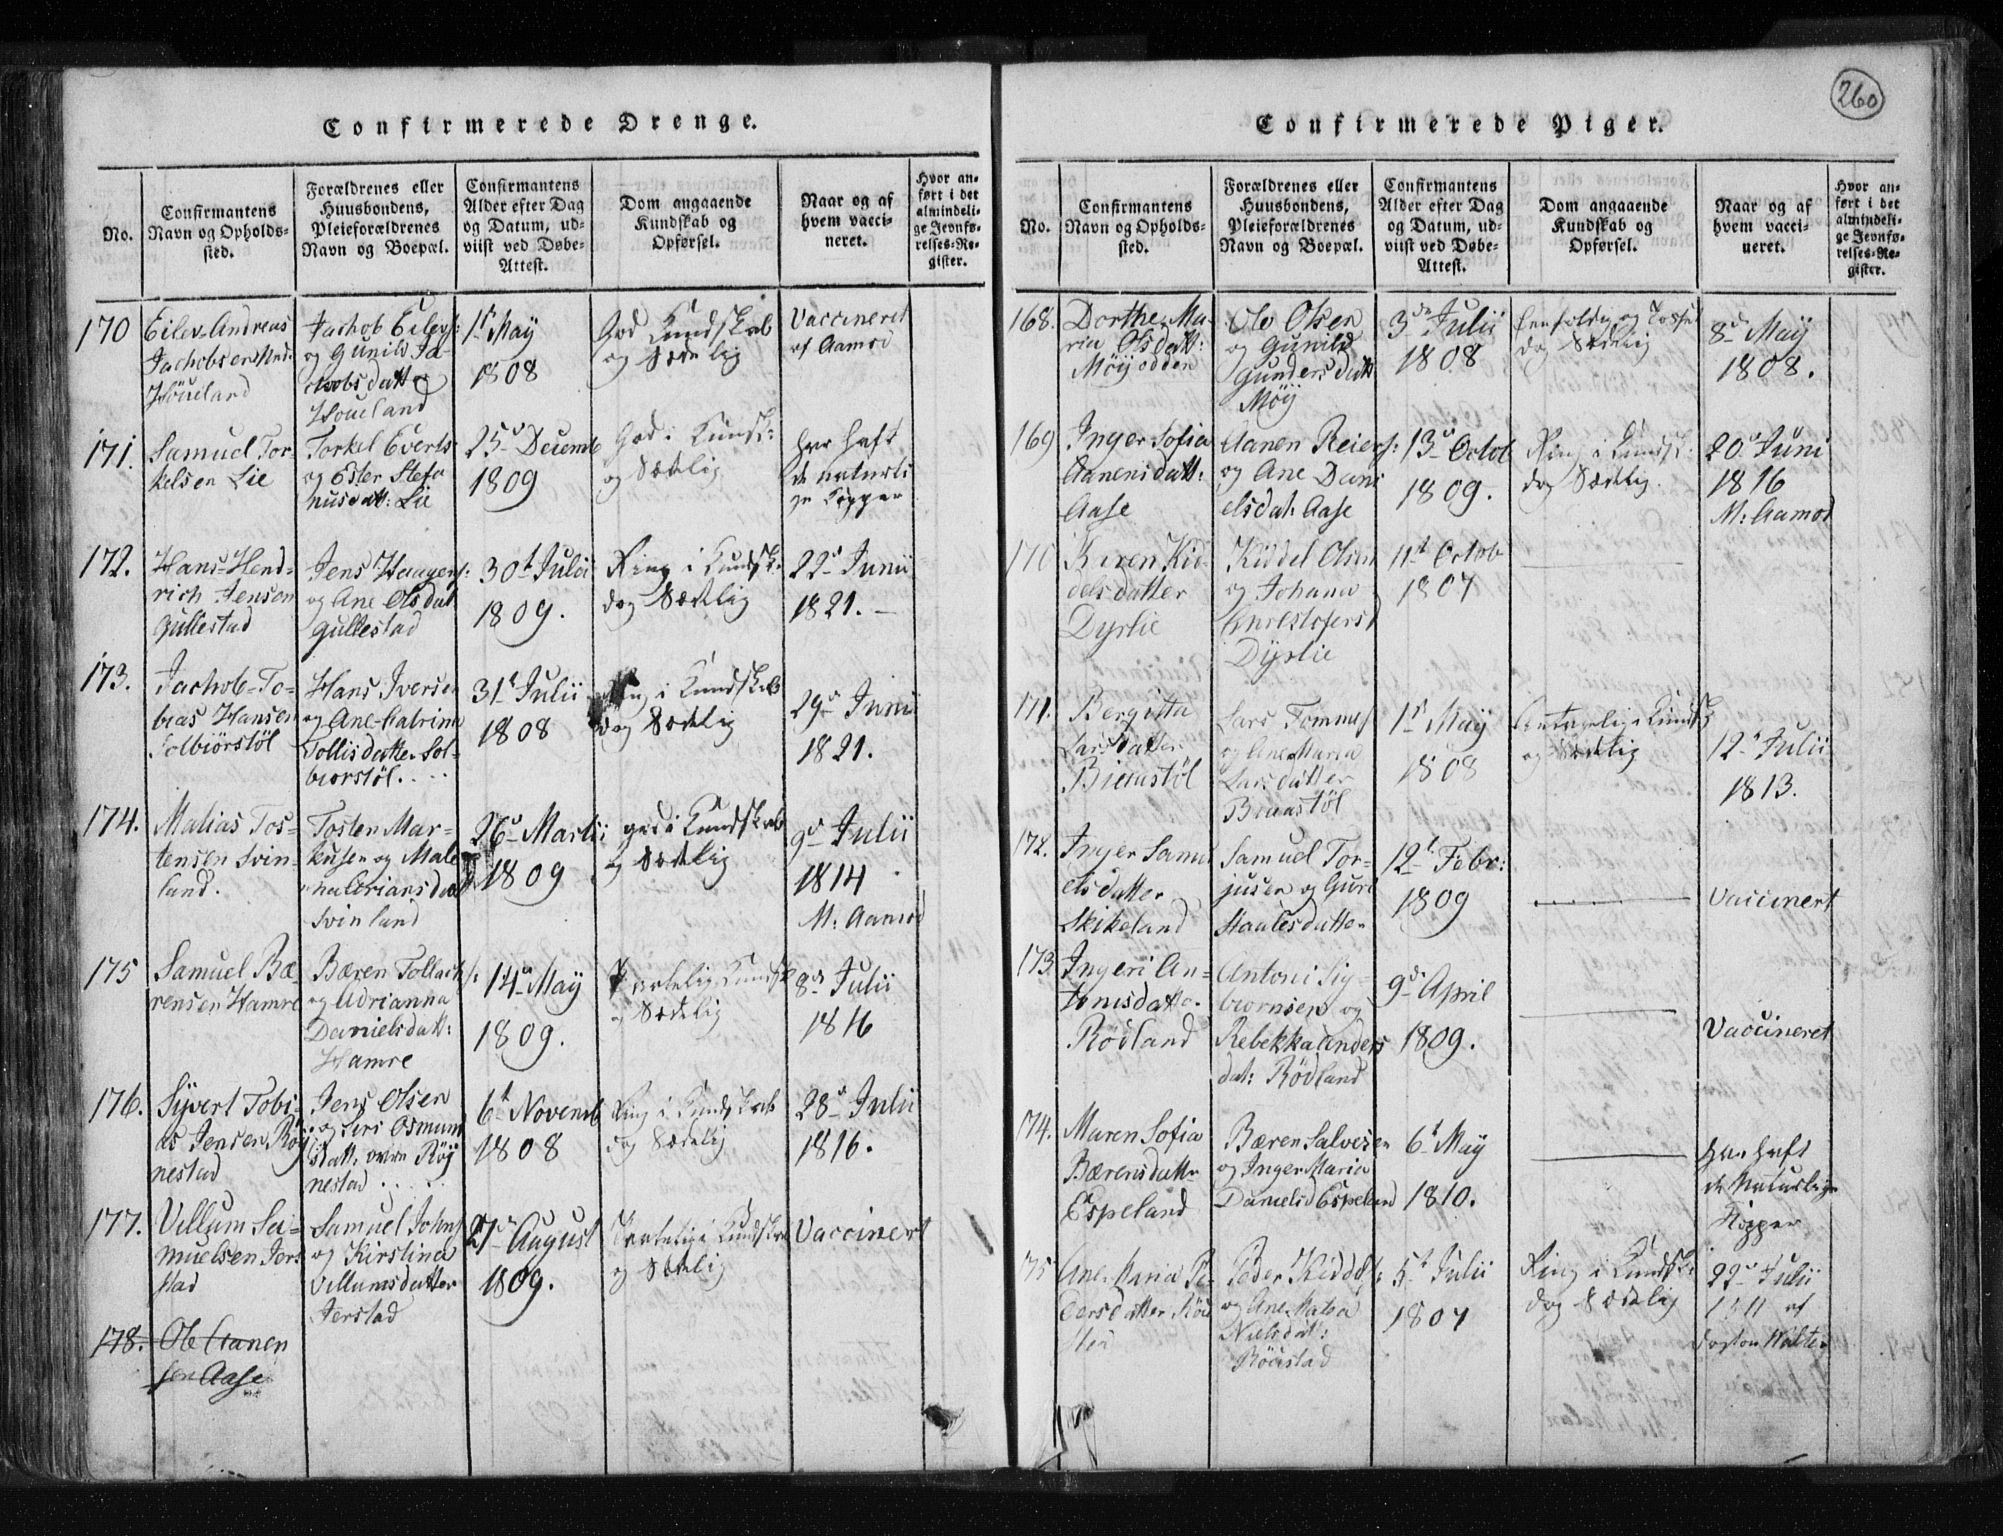 260
Confirmerede Drenge.
No.
Confirmantens
Navn og Opholds-
sted.
Forældrenes eller
Huusbondens,
Pleieforældrenes
Navn og Boepæl.
Confirmantens
Alder efter Dag
og Datum, ud-
viist ved Døbe-
Attest.
Dom angaaende
Kundskab og
Opførsel.
Naar og af
hvem vacci-
neret.
Hvor an-
ført i det
almindeli-
ge Jevnfø-
relses-Re-
gister.
170
Eilev Andreas
Jachobsen
Höueland
Jachob Eilevs:
og Gunild Ja-
chobsdatter
Houeland
1t May
1808
God Kundskab
og Sædelig
Vaccineret
af Aamod
171.
Samuel Tor
kelsen Lie
Torkel Everts
og Ester Stefa
nusdatt: Lie
25d Decemb
1809
God i Kundsk:
og Sædelig
har haft
de naturli
ge Kopper
172.
Hans Hend-
rich Jensen
Gullestad
Jens Haagens:
og Ane Olsdat
Gullestad
30t Julii
1809.
Ring i Kundsk:
dog Sædelig
22d Junii
1821.
173.
Jachob To-
bias Hansen
Solbiörstöl
Hans Iversen
og Ane Catrina
Tollisdatter Sol-
biorstöl.
31t Julii
1808
Ring i Kundskab
dog Sædelig
29d Junii
1821.
174.
Matias Tos-
tensen Svin-
land.
Tosten Mar-
kusen og Male
Svinland
26d Martii
1809
god i Kundskab
og Sædelig
9d Julii
1814
M: Aamod
175
Samuel Bæ
rensen Hamre
Bæren Tollachs:
og Adrianna
Danielsdatt:
Hamre
14d May
1809.
og Sædelig
8d Julii
1816
176.
Syvert Tobi-
as Jensen Röy
nestad
Jens Olsen
og Siri Osmun
dsdatt: övre Röy
nestad
6t Novemb
1808
Ring i Kundskab
dog Sædelig
28d Julii
1816.
177.
Villum Sa-
muelsen Jers
stad
Samuel Johns
og Kirstina
Villumsdatter
Jerstad
27d August
1809.
og Sædelig
Vaccinert
178.
Ole Aanen
sen Aase
Confirmerede Piger.
No.
Confirmantens
Navn og Opholds-
sted.
Forældrenes eller
Huusbondens,
Pleieforældrenes
Navn og Boepæl.
Confirmantens
Alder efter Dag
og Datum, ud-
viist ved Døbe-
Attest.
Dom angaaende
Kundskab og
Opførsel.
Naar og af
hvem vacci-
neret.
Hvor an-
ført i det
almindeli-
ge Jevnfø-
relses-Re-
gister.
168.
Dorthe Ma-
ria Olsdatt:
Möyodden
Ole Olsen
og Gunild
Gundersdatt
Möy
3de Julii
1808
dog Sædelig
8d May
1808.
169
Inger Sofia
Aanensdatt:
Aase
Aanen Reiers:
og Ane Dani
elsdat: Aase
13d Octob
1809.
Ring i Kundsk:
dog Sædelig.
20d Juni
1816
M: Aamod
170
Karen Kid
delsdatter
Dyrlie
Kiddel Olsen
og Johana
Christofersd
Dyrlie
11t Octob
1807
171.
Bergitta
Larsdatter
Bierustöl
Lars Tommes
og Ane Maria
Larsdatter
Bruastöl
1t May
1808
Antagelig i Kundsk
og Sædelig
12d Julii
1813.
172.
Inger Samu
elsdatter
Skikeland
Samuel Tor-
jusen og Guri
Staalesdatter
12t Febr:
1809
Vaccinert
173.
Ingeri An-
tonisdatter
Rödland
Antoni Sig-
biornsen og
Rebekka Anders
dat: Rödland
9de April
1809.
Vaccineret
174.
Maren Sofia
Bærensdatter
Espeland
Bæren Salvesen
og Inger Maria
Danielsd Espeland
6t May
1810.
har haft
de Naturlige
Kopper
175
Ane Maria Pe-
dersdatter Röi
sta
Peder Kiddels:
og Ane Malea
Nielsdat:
Röiestad
5t Julii
1807
Ring i Kundsk:
dog Sædelig
22d Julii
1811 af